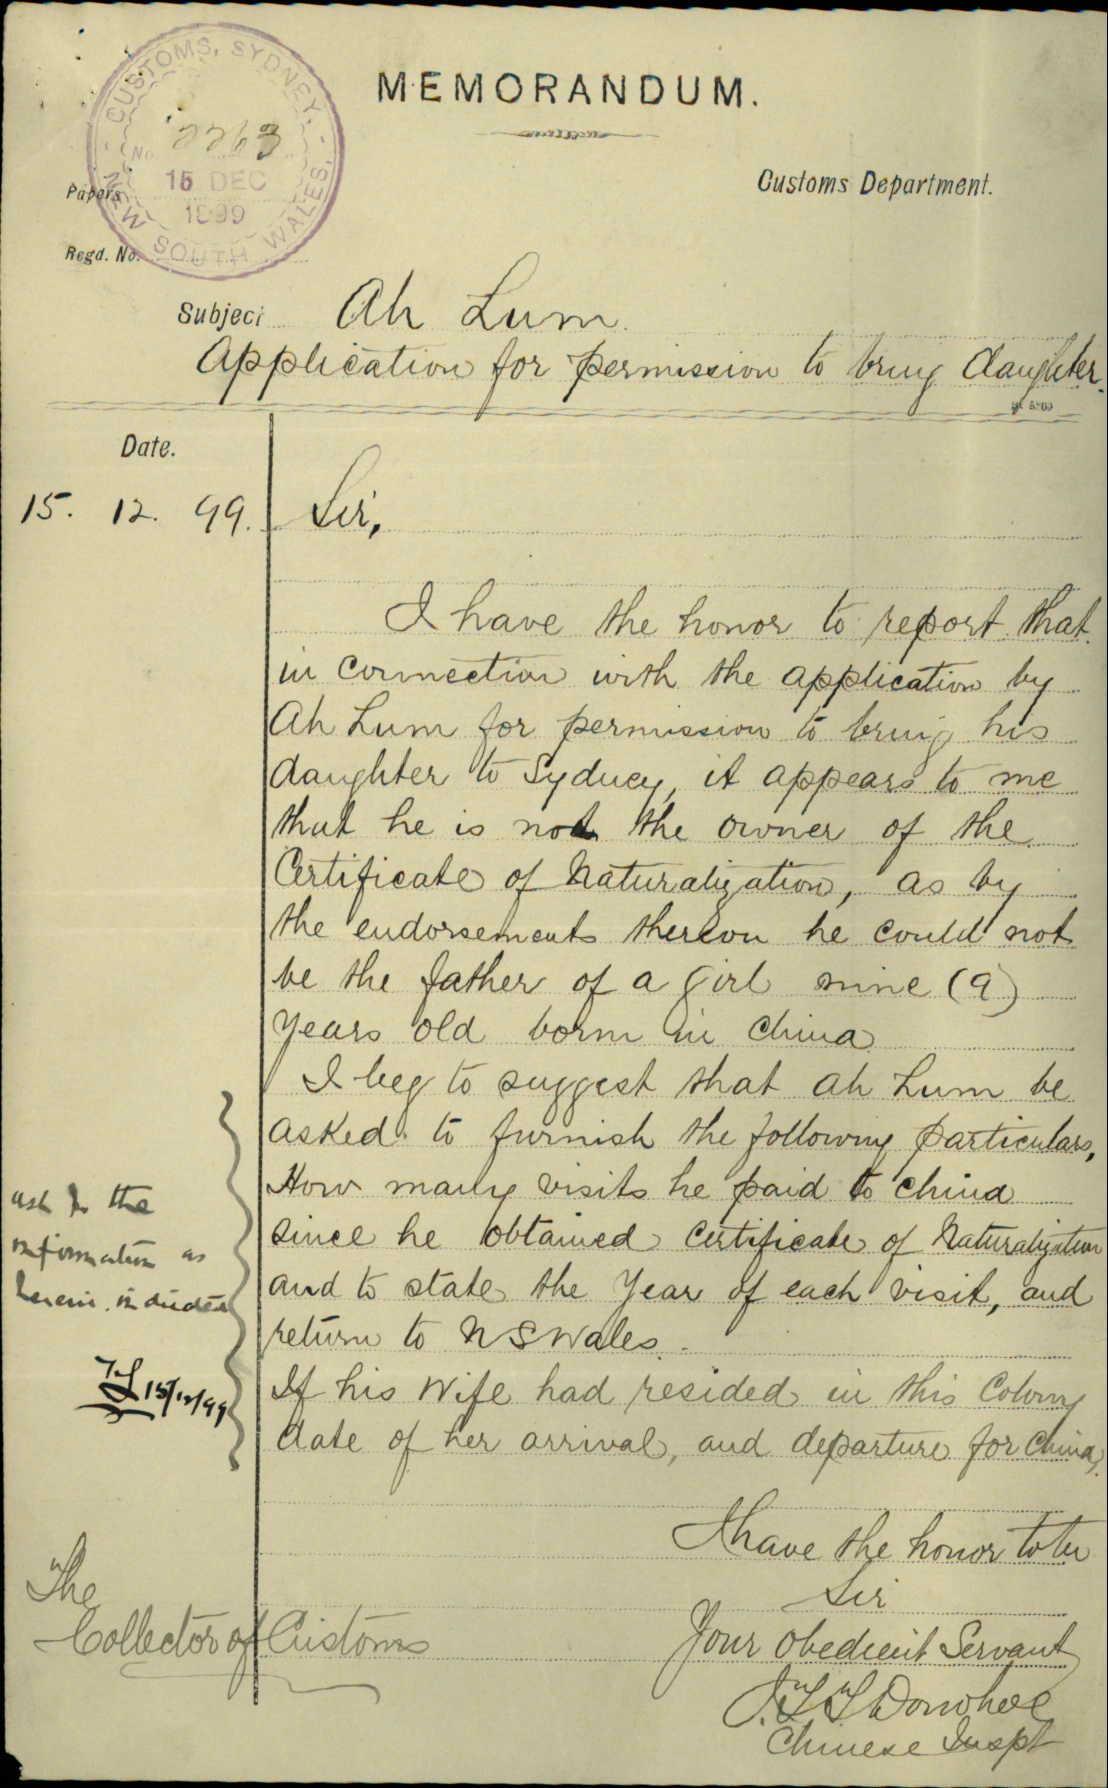 MEMORANDUM.
CUSTOMS, SYDNEY.
NEW SOUTH WALES.
No. 2263
15 DEC
1899
Customs Department.
Papers
Regd. No.
Subject Ah Lum
Application for permission to bring daughter.
Date.
15. 12. 99. Sir,
I have the honor to report that
in connection with the application by
Ah Lum for permission to bring his
daughter to Sydney, it appears to me
that he is not the owner of the
Certificate of Naturalization, as by
the endorsements thereon he could not
be the father of a girl nine (9)
years old born in China
I beg to suggest that Ah Lum be
asked to furnish the following particulars,
How many visits he paid to China
since he obtained Certificate of Naturalization
and to state the Year of each visit, and
return to N S Wales.
If his Wife had resided in this Colony
date of her arrival, and departure for China.
ask for the
information as
herein indicated
15/12/99
I have the honor to be
Sir
Your Obedient Servant
J.T.T. Donohoe
Chinese Inspt
The
Collector of Customs